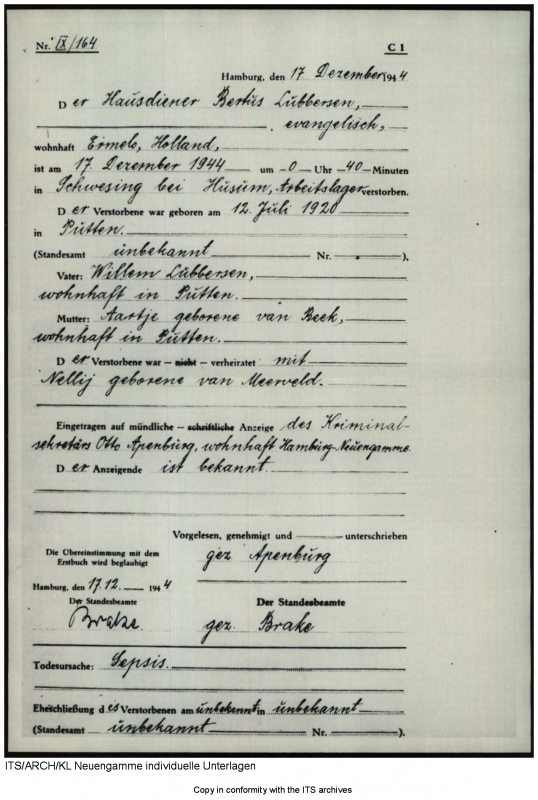 Nr. IX/164 C 1
Hamburg, den 17 Dezember 1944
Der Hausdiener Bertus Lubbersen,
evangelisch,
wohnhaft Ermelo, Holland,
ist am 17. Dezember 1944 um 0 Uhr 40 Minuten
in Schwesing bei Husum, Arbeitslager verstorben.
Der Verstorbene war geboren am 12. Juli 1920
in Putten.
(Standesamt unbekannt Nr. ).
Vater: Willem Lubbersen,
wohnhaft in Putten.
Mutter: Aartje geborene van Beek,
wohnhaft in Putten.
Der Verstorbene war – nicht – verheiratet mit
Nellij geborene van Meerveld.
Eingetragen auf mündliche – schriftliche Anzeige des Kriminal-
sekretärs Otto Apenburg, wohnhaft Hamburg-Neuengamme.
Der Anzeigende ist bekannt.
Vorgelesen, genehmigt und unterschrieben
gez Apenburg
Die Übereinstimmung mit dem
Erstbuch wird beglaubigt
Hamburg, den 17.12. 1944
Der Standesbeamte
Brake.
Der Standesbeamte
gez Brake
Todesursache: Sepsis.
Eheschließung des Verstorbenen am unbekannt in unbekannt
(Standesamt unbekannt Nr. ).
ITS/ARCH/KL Neuengamme individuelle Unterlagen
Copy in conformity with the ITS archives